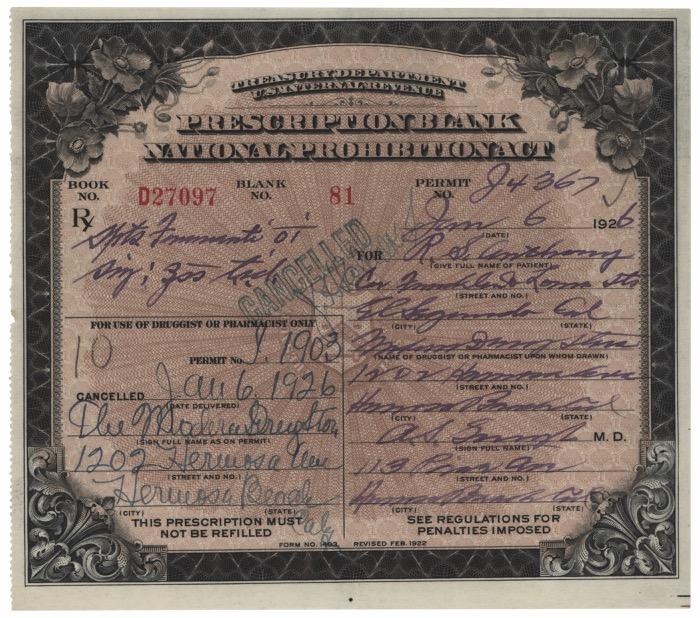 TREASURY DEPARTMENT
U.S. INTERNAL REVENUE
PRESCRIPTION BLANK
NATIONAL PROHIBITION ACT
BOOK NO. D27097 BLANK NO. 81 PERMIT NO. J4367
Rx
Jan 6 1926
(DATE)
Spts Frumenti
FOR R. S.
(GIVE FULL NAME OF PATIENT)
Cor Franklin & Loma Sts
(STREET AND NO.)
El Segundo Cal
(CITY) (STATE)
CANCELLED
Drug Store
(NAME OF DRUGGIST OR PHARMACIST UPON WHOM DRAWN)
1202 Hermosa Ave
(STREET AND NO.)
Hermosa Beach Cal
(CITY) (STATE)
A. S. M. D.
(SIGN FULL NAME)
Hermosa Beach Cal
(STREET AND NO.)
(CITY) (STATE)
SEE REGULATIONS FOR
PENALTIES IMPOSED
FOR USE OF DRUGGIST OR PHARMACIST ONLY
10
PERMIT No. J. 1903
CANCELLED Jan 6, 1926
(DATE DELIVERED)
The Drug Store
(SIGN FULL NAME AS ON PERMIT)
1202 Hermosa Ave
(STREET AND NO.)
Hermosa Beach
(CITY) (STATE)
Caly
THIS PRESCRIPTION MUST
NOT BE REFILLED
FORM NO. 1403 REVISED FEB. 1922